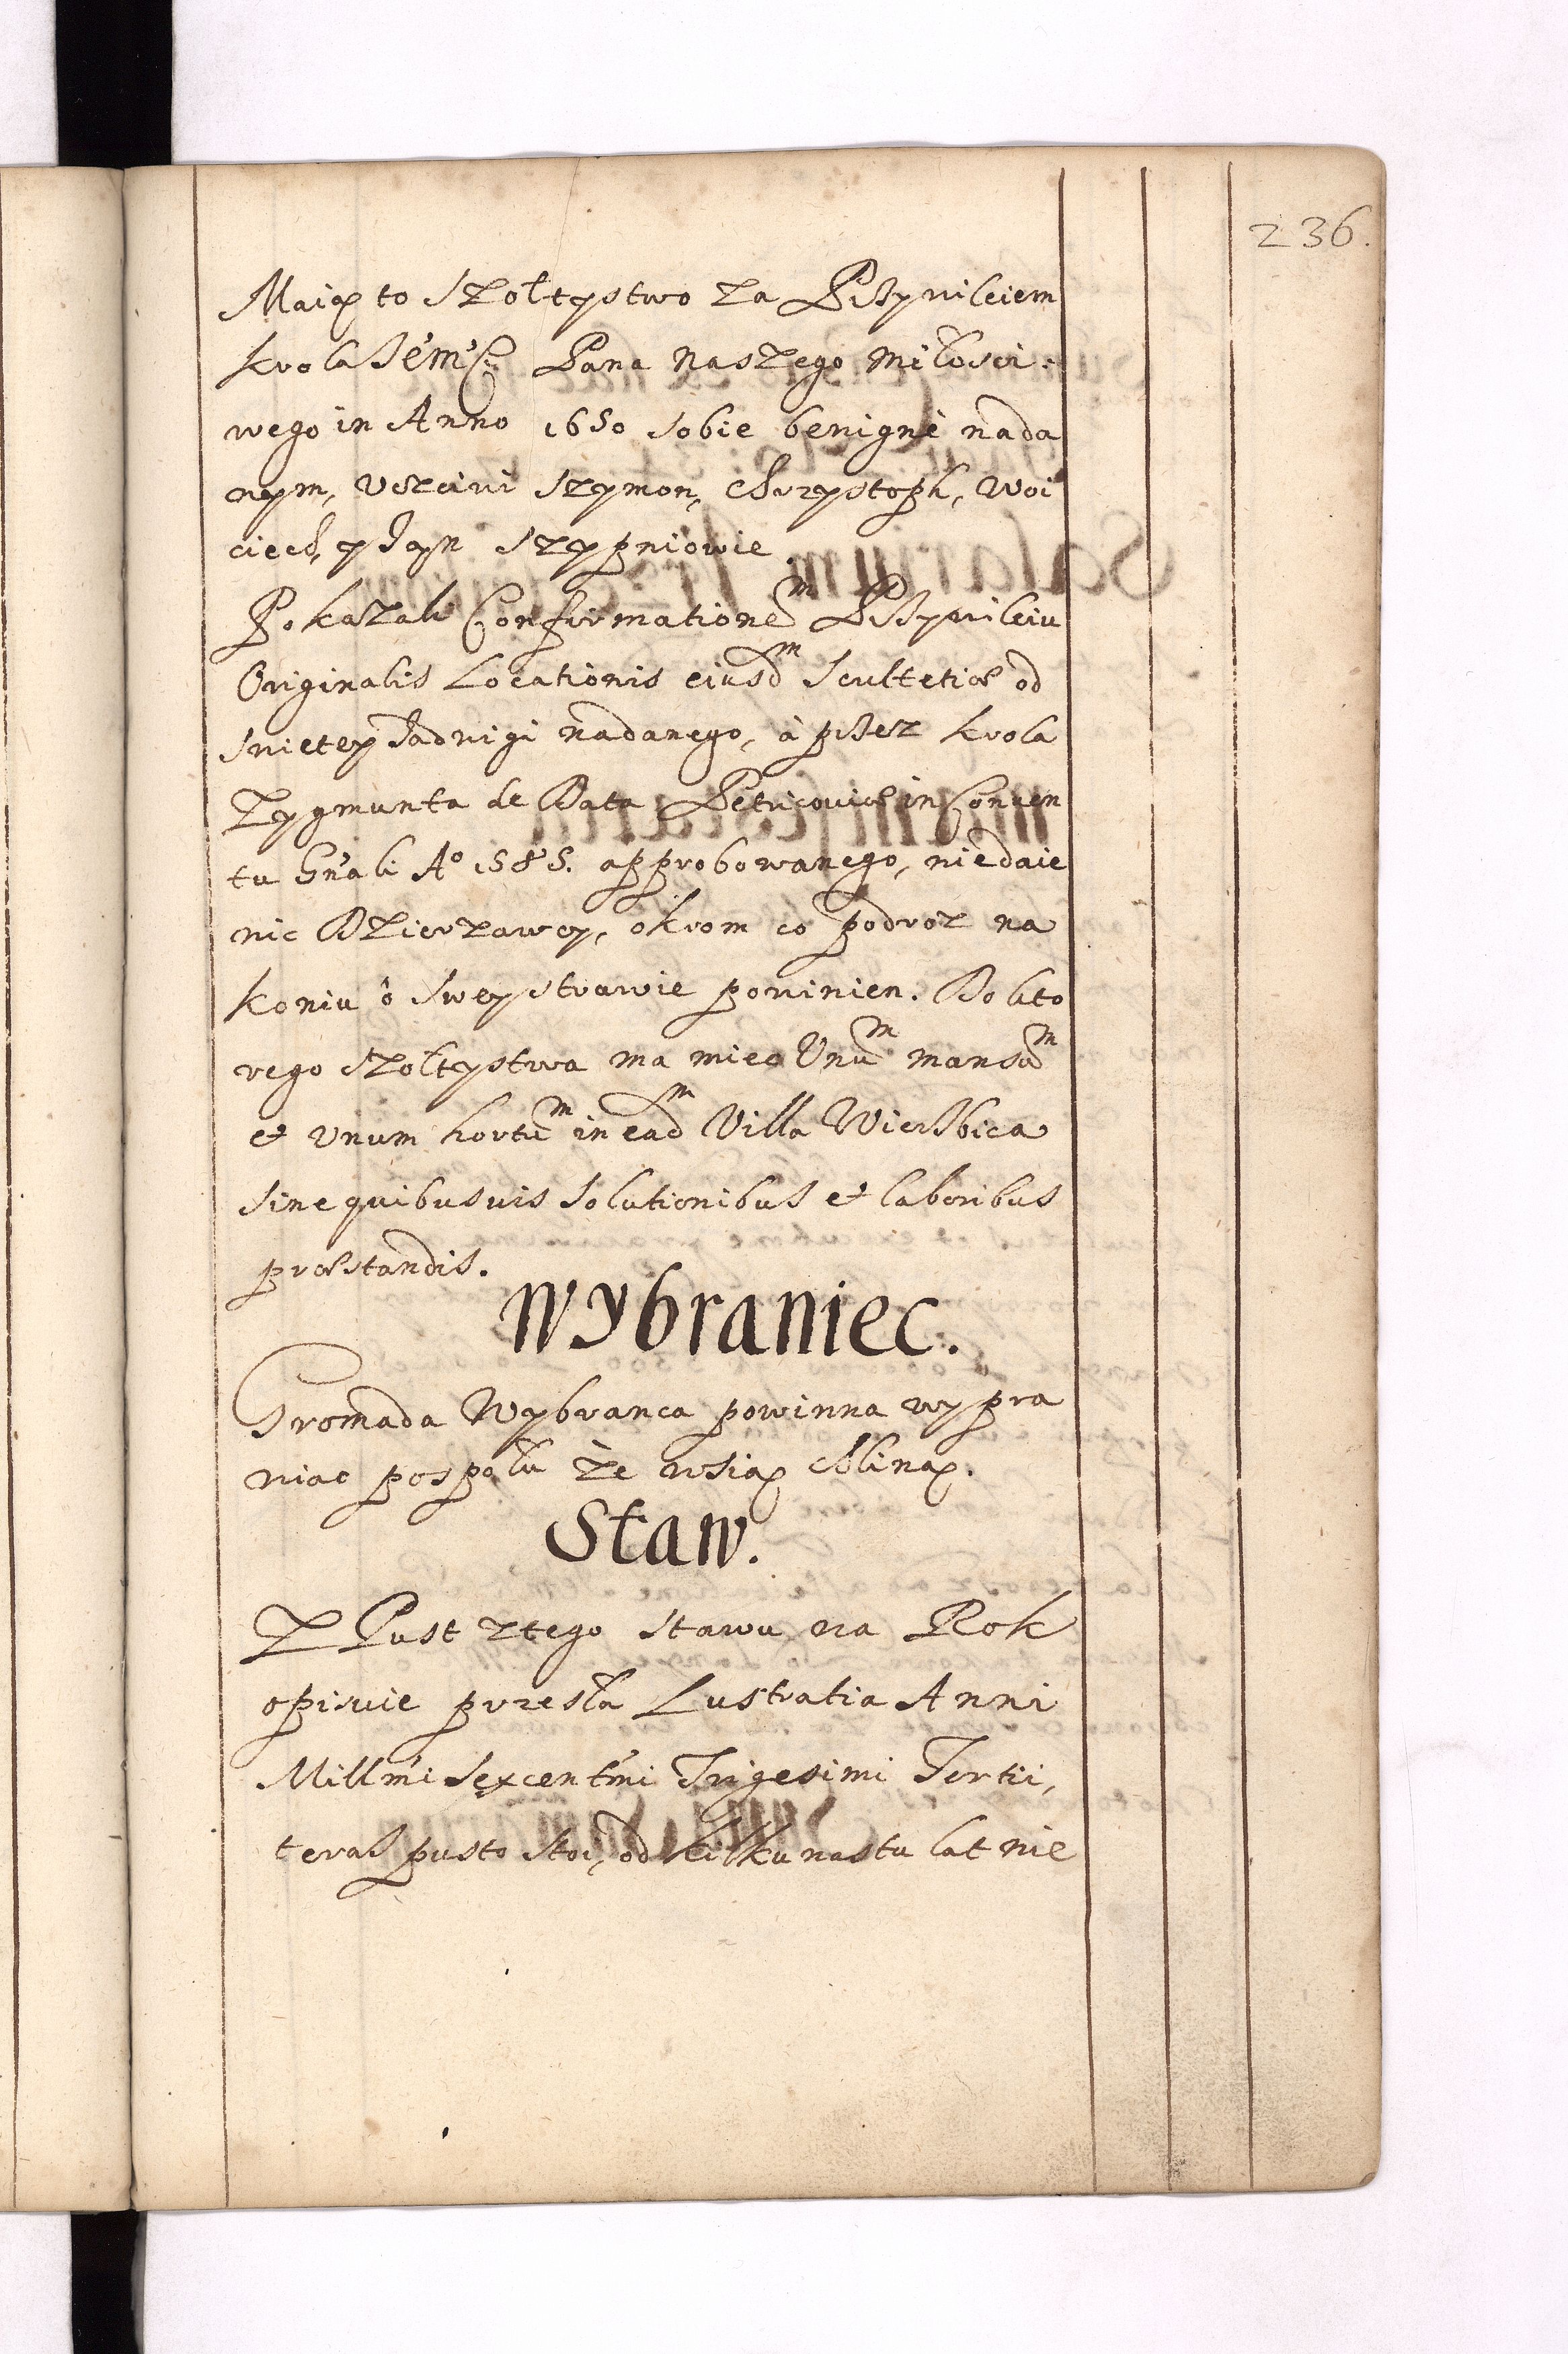 236.
Maią to Szołtystwo za Przÿwileiem
Krola Je͠m͠ści Pana naszego Miłości:
wego in Anno 1650 sobie benignè nada
nym, Uczciwi Szymon, Chrzystoph, Woi
ciech, y Jan Szypniowie
Pokazali Confirmationem Przywileiu
Originalis Locationis eiusdm Scultetiæ od
Swietey Jadwigi nadanego, à przez Krola
Zygmunta de Data Petricoviæ in Conven
tu Gńali Aº 1585. approbowanego, niedaie
nic Dzierzawcy, okrom co podroz na
koniu o swey strawie powinien. Do kto
rego Szołtystwa ma miec Unum mansum
et unum hortum in eadm Villa Wierzbica
sine quibusvis solutionibus et laboribus
præstandis.
Wybraniec.
Gromada Wybranca powinna wypra
wiac pospołu że wsią Chliną.
Staw.
Z Pust ztego stawu na Rok
opisuie przesła Lustratia Anni
Millm̃i Sexcentm̃i Trigesimi Tertii,
teraz pusto stoi, od kilkunastu lat nie